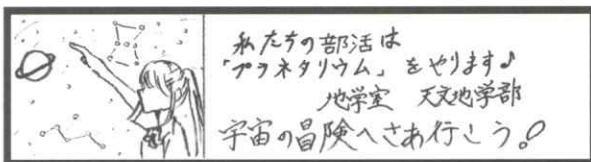 私たちの部活は
「プラネタリウム」をやります♪
地学室 天文地学部
宇宙の冒険へさあ行こう!